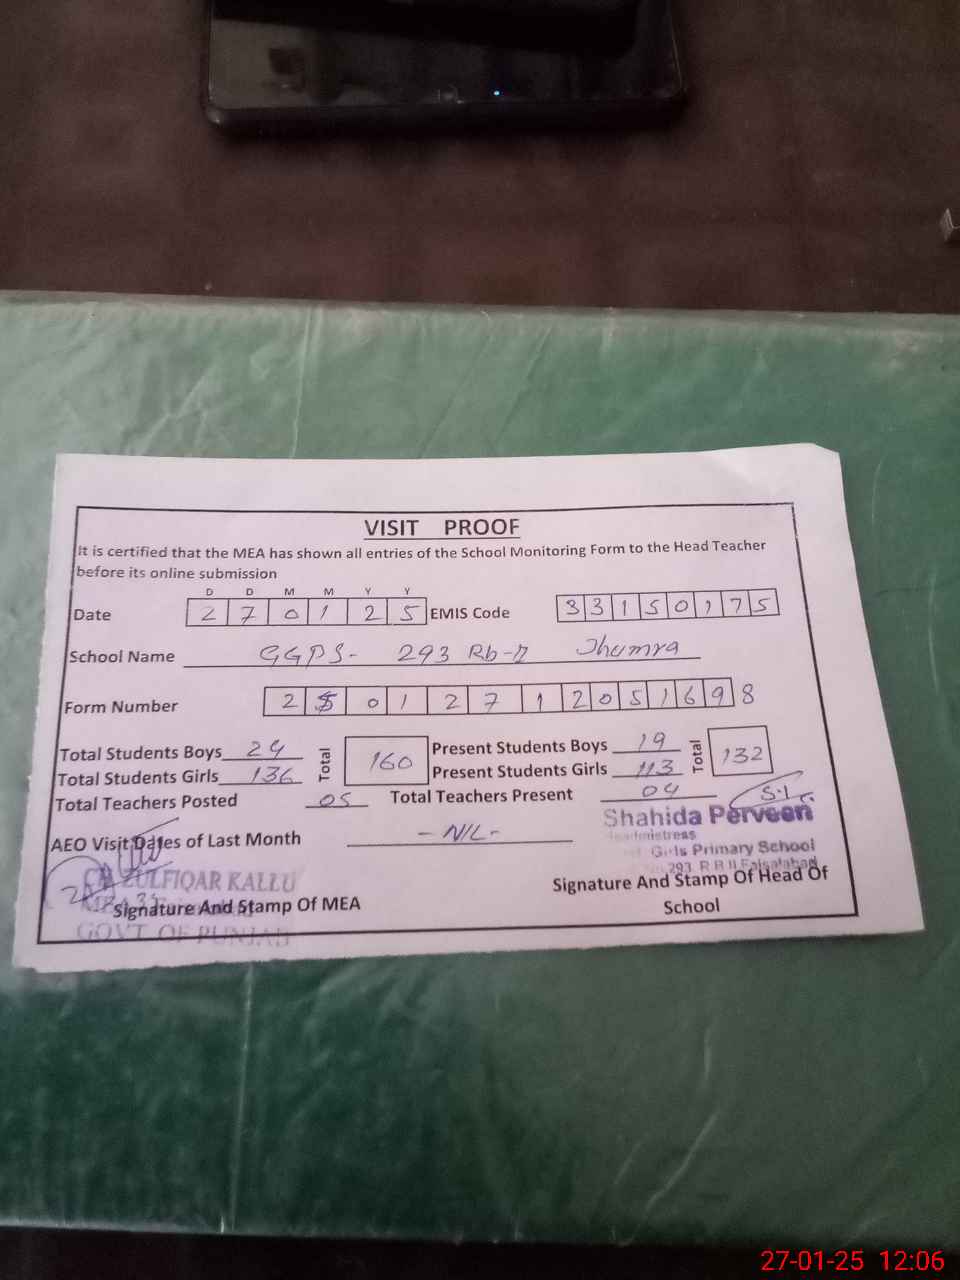 VISIT PROOF
It is certified that the MEA has shown all entries of the School Monitoring Form to the Head Teacher
before its online submission
D D M M Y Y
Date 2 7 0 1 2 5 EMIS Code 3 3 1 5 0 1 7 5
School Name GGPS- 293 Rb-II Jhumra
Form Number 2 5 0 1 2 7 1 2 0 5 1 6 9 8
Total Students Boys 24 Total 160 Present Students Boys 19 Total 132
Total Students Girls 136 Present Students Girls 113
Total Teachers Posted 05 Total Teachers Present 04
S.I.
Shahida Perveen
Headmistress
AEO Visit Dates of Last Month -NIL-
Girls Primary School
293 R.B II Faisalabad
ZULFIQAR KALLU
Signature And Stamp Of MEA
GOVT OF PUNJAB
Signature And Stamp Of Head Of
School
27-01-25 12:06